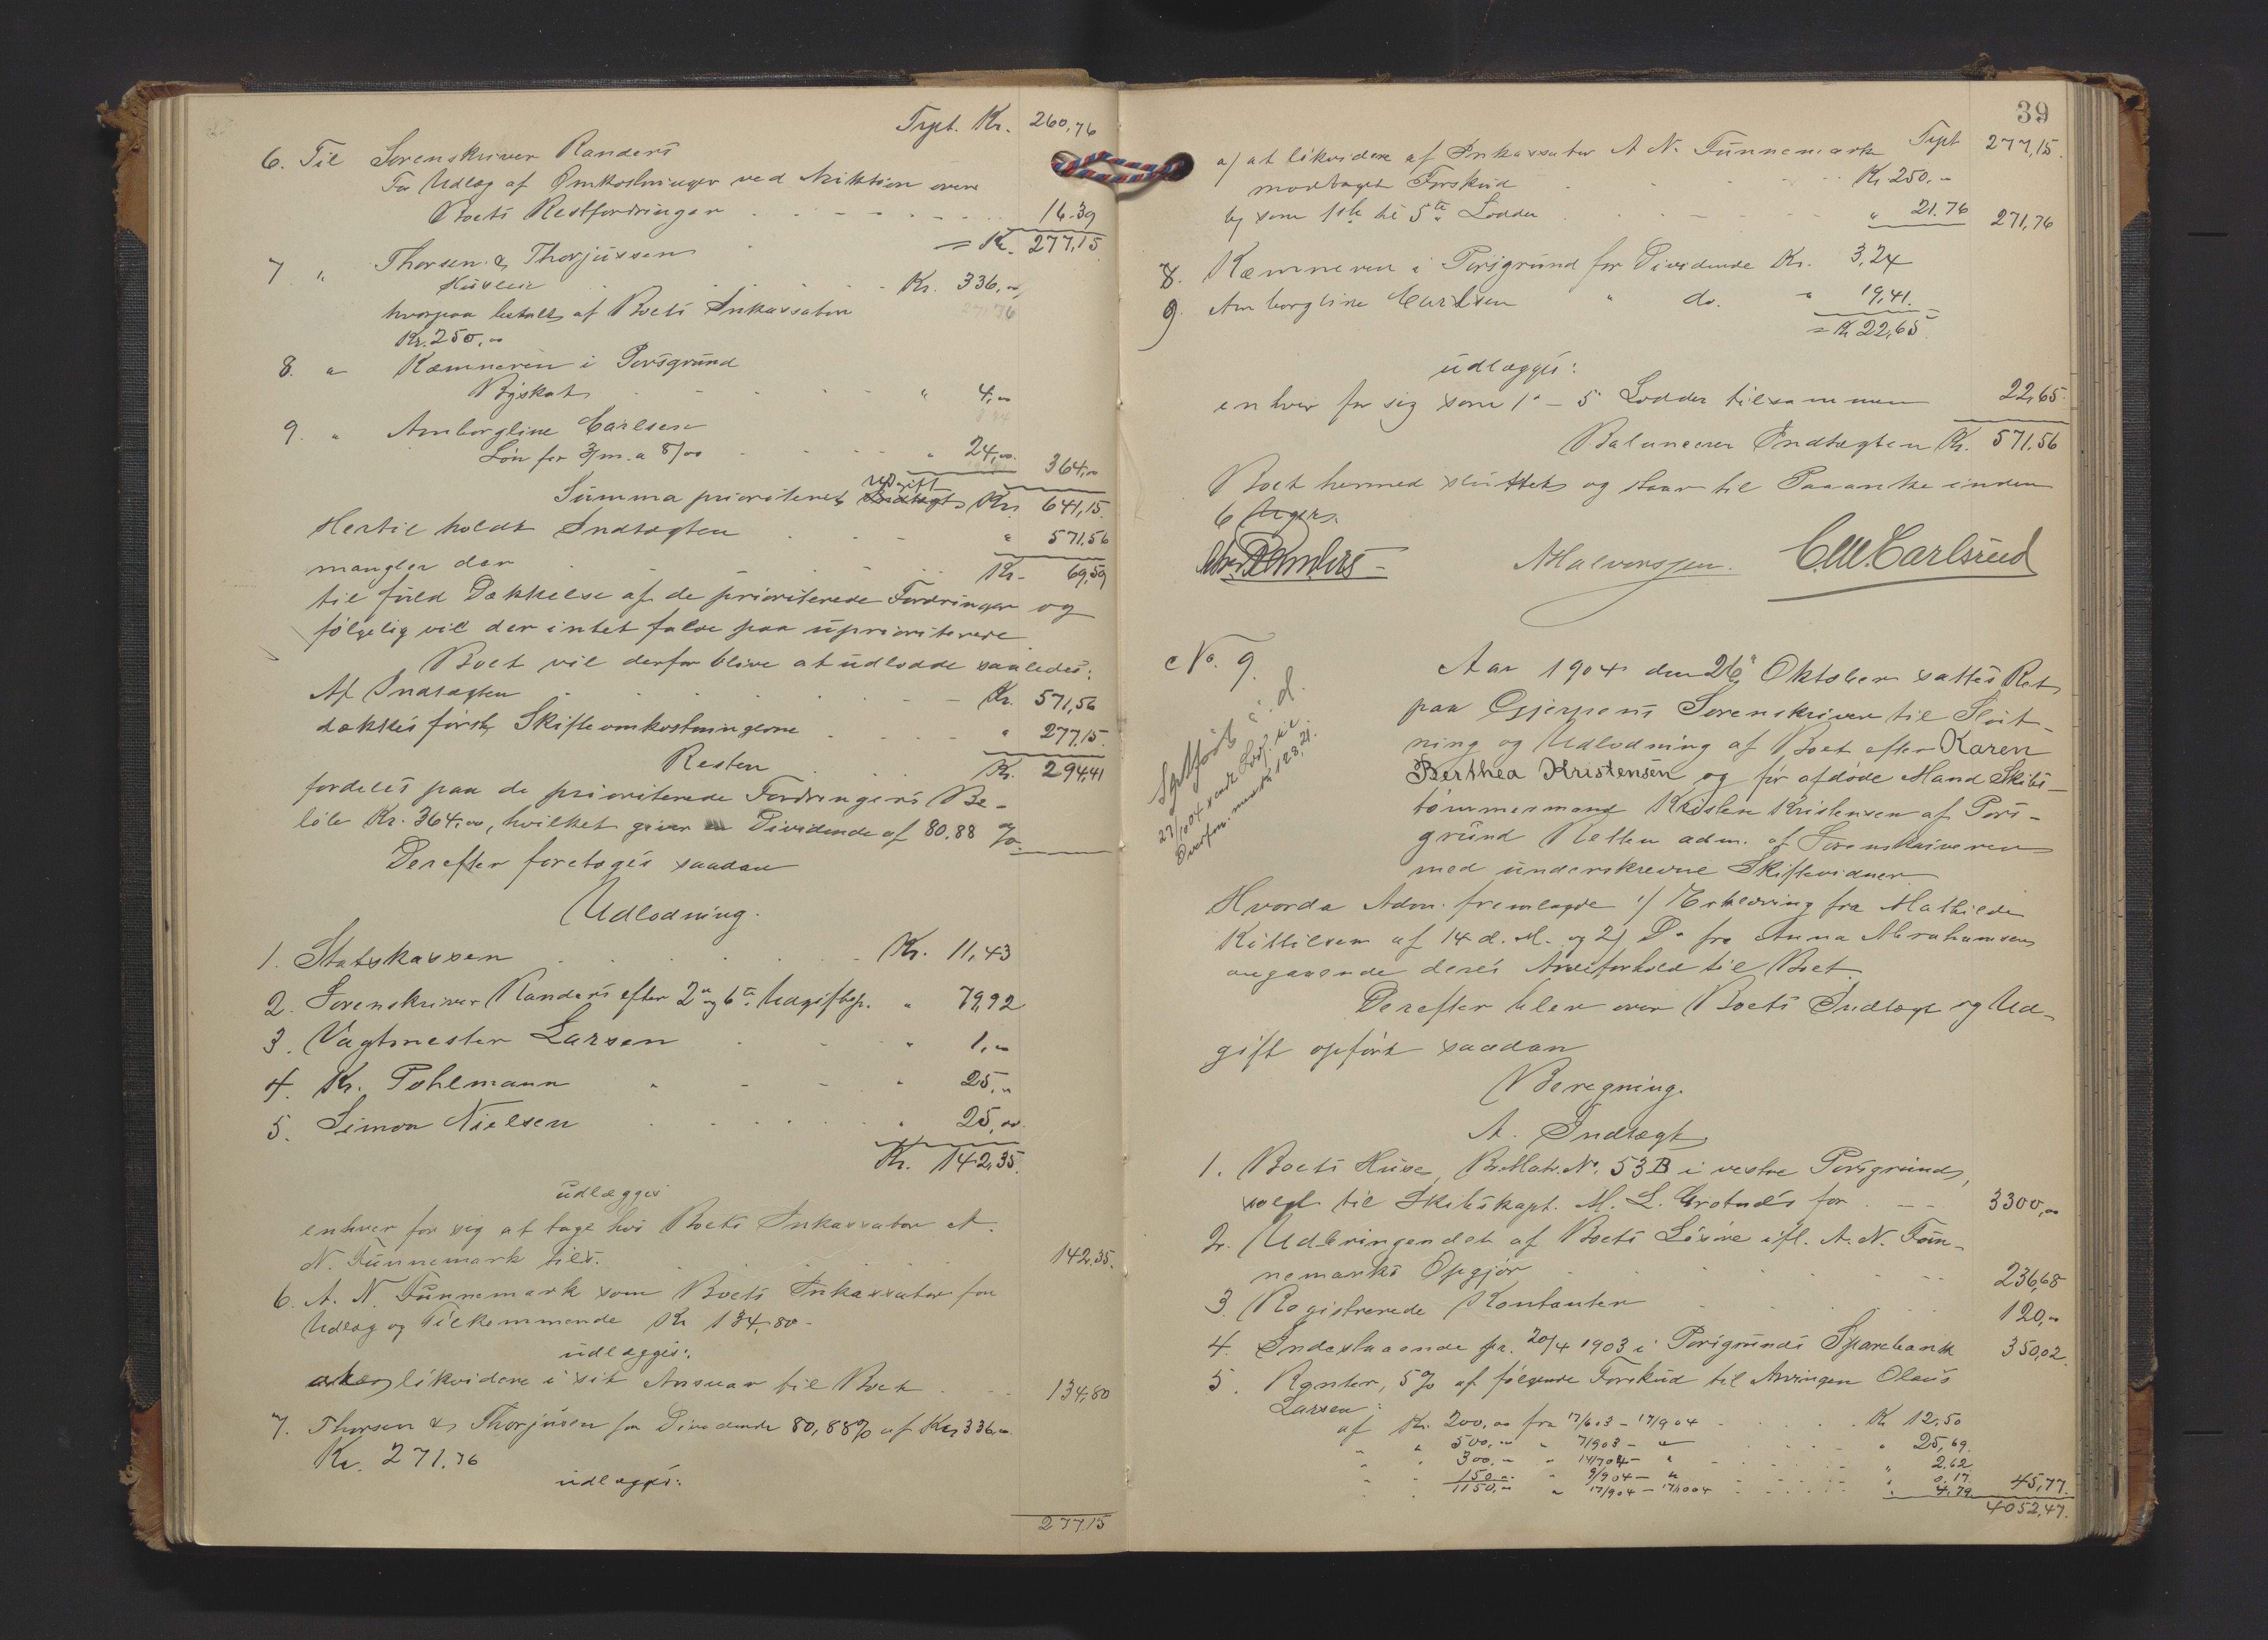 Trpt. Kr. 260,76
6. Til Sorenskriver Randers
For Udlæg af Omkostninger ved Auktion over
Boets Restfordringer 16.39
= Kr. 277,15
7 " Thorsen & Thorjussen
Husleie Kr. 336,00
hvorpaa betalt af Boets Inkassator
Kr. 250,00
8. " Kæmneren i Porsgrund
Byskat " 4,00
9. " Amborgline Carlsen
Løn for 3/m. a 8/00 " 24,00 364,00
Summa prioriteret Udgift Kr. 641,15.
Hertil holdt Indtægten " 571,56
mangler der Kr. 69,59
til fuld Dækkelse af de prioriterede Fordringer og
følgelig vil der intet falde paa uprioriterede
Boet vil derfor blive at udlodde saaledes:
Af Indtægten Kr. 571,56
dækkes først Skifteomkostningerne " 277,15.
Resten Kr. 294,41
fordeles paa de prioriterede Fordringers Be-
løb Kr. 364,00, hvilket giver en Dividende af 80.88 %
Derefter foretoges saadan
Udlodning.
1. Statskassen Kr. 11,43
2. Sorenskriver Randers efter 2" og 6te Udgiftsp. " 79,92
3. Vagtmester Larsen " 1,00
4. Kr. Pohlmann " 25,"
5. Simon Nielsen " 25,00.
Kr. 142,35.
udlægges
enhver for sig at tage hos Boets Inkassator A.
N. Funnemark tils. 142,35.
6. A. N. Funnemark som Boets Inkassator for
Udlæg og Tilkommende Kr 134,80 -
udlægges:
likvidere i sit Ansvar til Boet 134,80
7. Thorsen & Thorjusen for Dividende 80,88% af Kr 336,00
Kr. 271.76
udlægges:
277,15
39
Trpt 277,15.
a/ at likvidere af Inkassator A N. Funnemark
modtaget Forskud Kr 250.-
b/ som 1ste til 5te Lodder " 21.76 271,76
8. Kæmneren i Porsgrund for Dividende Kr. 3,24
9. Amborgline Carlsen " do. " 19,41.
= Kr 22,65
udlægges:
enhver for sig som 1' - 5' Lodder tilsammen 22,65.
Balancerer Indtægten Kr. 571,56
Boet hermed sluttet og staar til Paaanke inden
6 Uger.
Randers - AHalvorsen. C.M. Carlsrud
No. 9.
Aar 1904 den 26' Oktober sattes Ret
paa Gjerpens Sorenskriveri til Slut-
ning og Udlodning af Boet efter Karen
Berthea Kristensen og før afdøde Mand Skibs-
tømmermand Kristen Kristensen af Pors-
grund Retten adm. af Sorenskriveren
med underskrevne Skiftevidner.
Hvorda Adm. fremlagde 1/ Erklæring fra Mathilde
Kittilsen af 14 d. M. og 2/ Do fra Anna Abrahamsen
angaaende deres Arveforhold til Boet.
Derefter blev over Boets Indtægt og Ud-
gift opført saadan
Beregning.
A. Indtægt
1. Boets Huse, B. Matr. No. 53 B i vestre Porsgrund,
solgt til Skibskapt. M. L. Grotnæs for 3300,00
2. Udbringendet af Boets Løsøre ifl. A. N. Fun-
nemarks Opgjør 236,68
3. Registrerede Kontanter 120,00
4. Indestaaende pr. 20/4 1903 i Porsgrunds Sparebank 350,02.
5. Renter, 5% af følgende Forskud til Arvingen Olaus
Larsen:
af Kr. 200,00 fra 17/6 03 - 17/9 04 Kr 12,50
" " 500,00 " 7/9 03 - " " 25,69.
" " 300.00 " 14/7 04 - " " 2,62
" " 150.00 " 9/9 04 - " " 0,17
" " 1150,00 " 17/9 04 - 17/10 04 " 4,79 45,77.
4052,47.